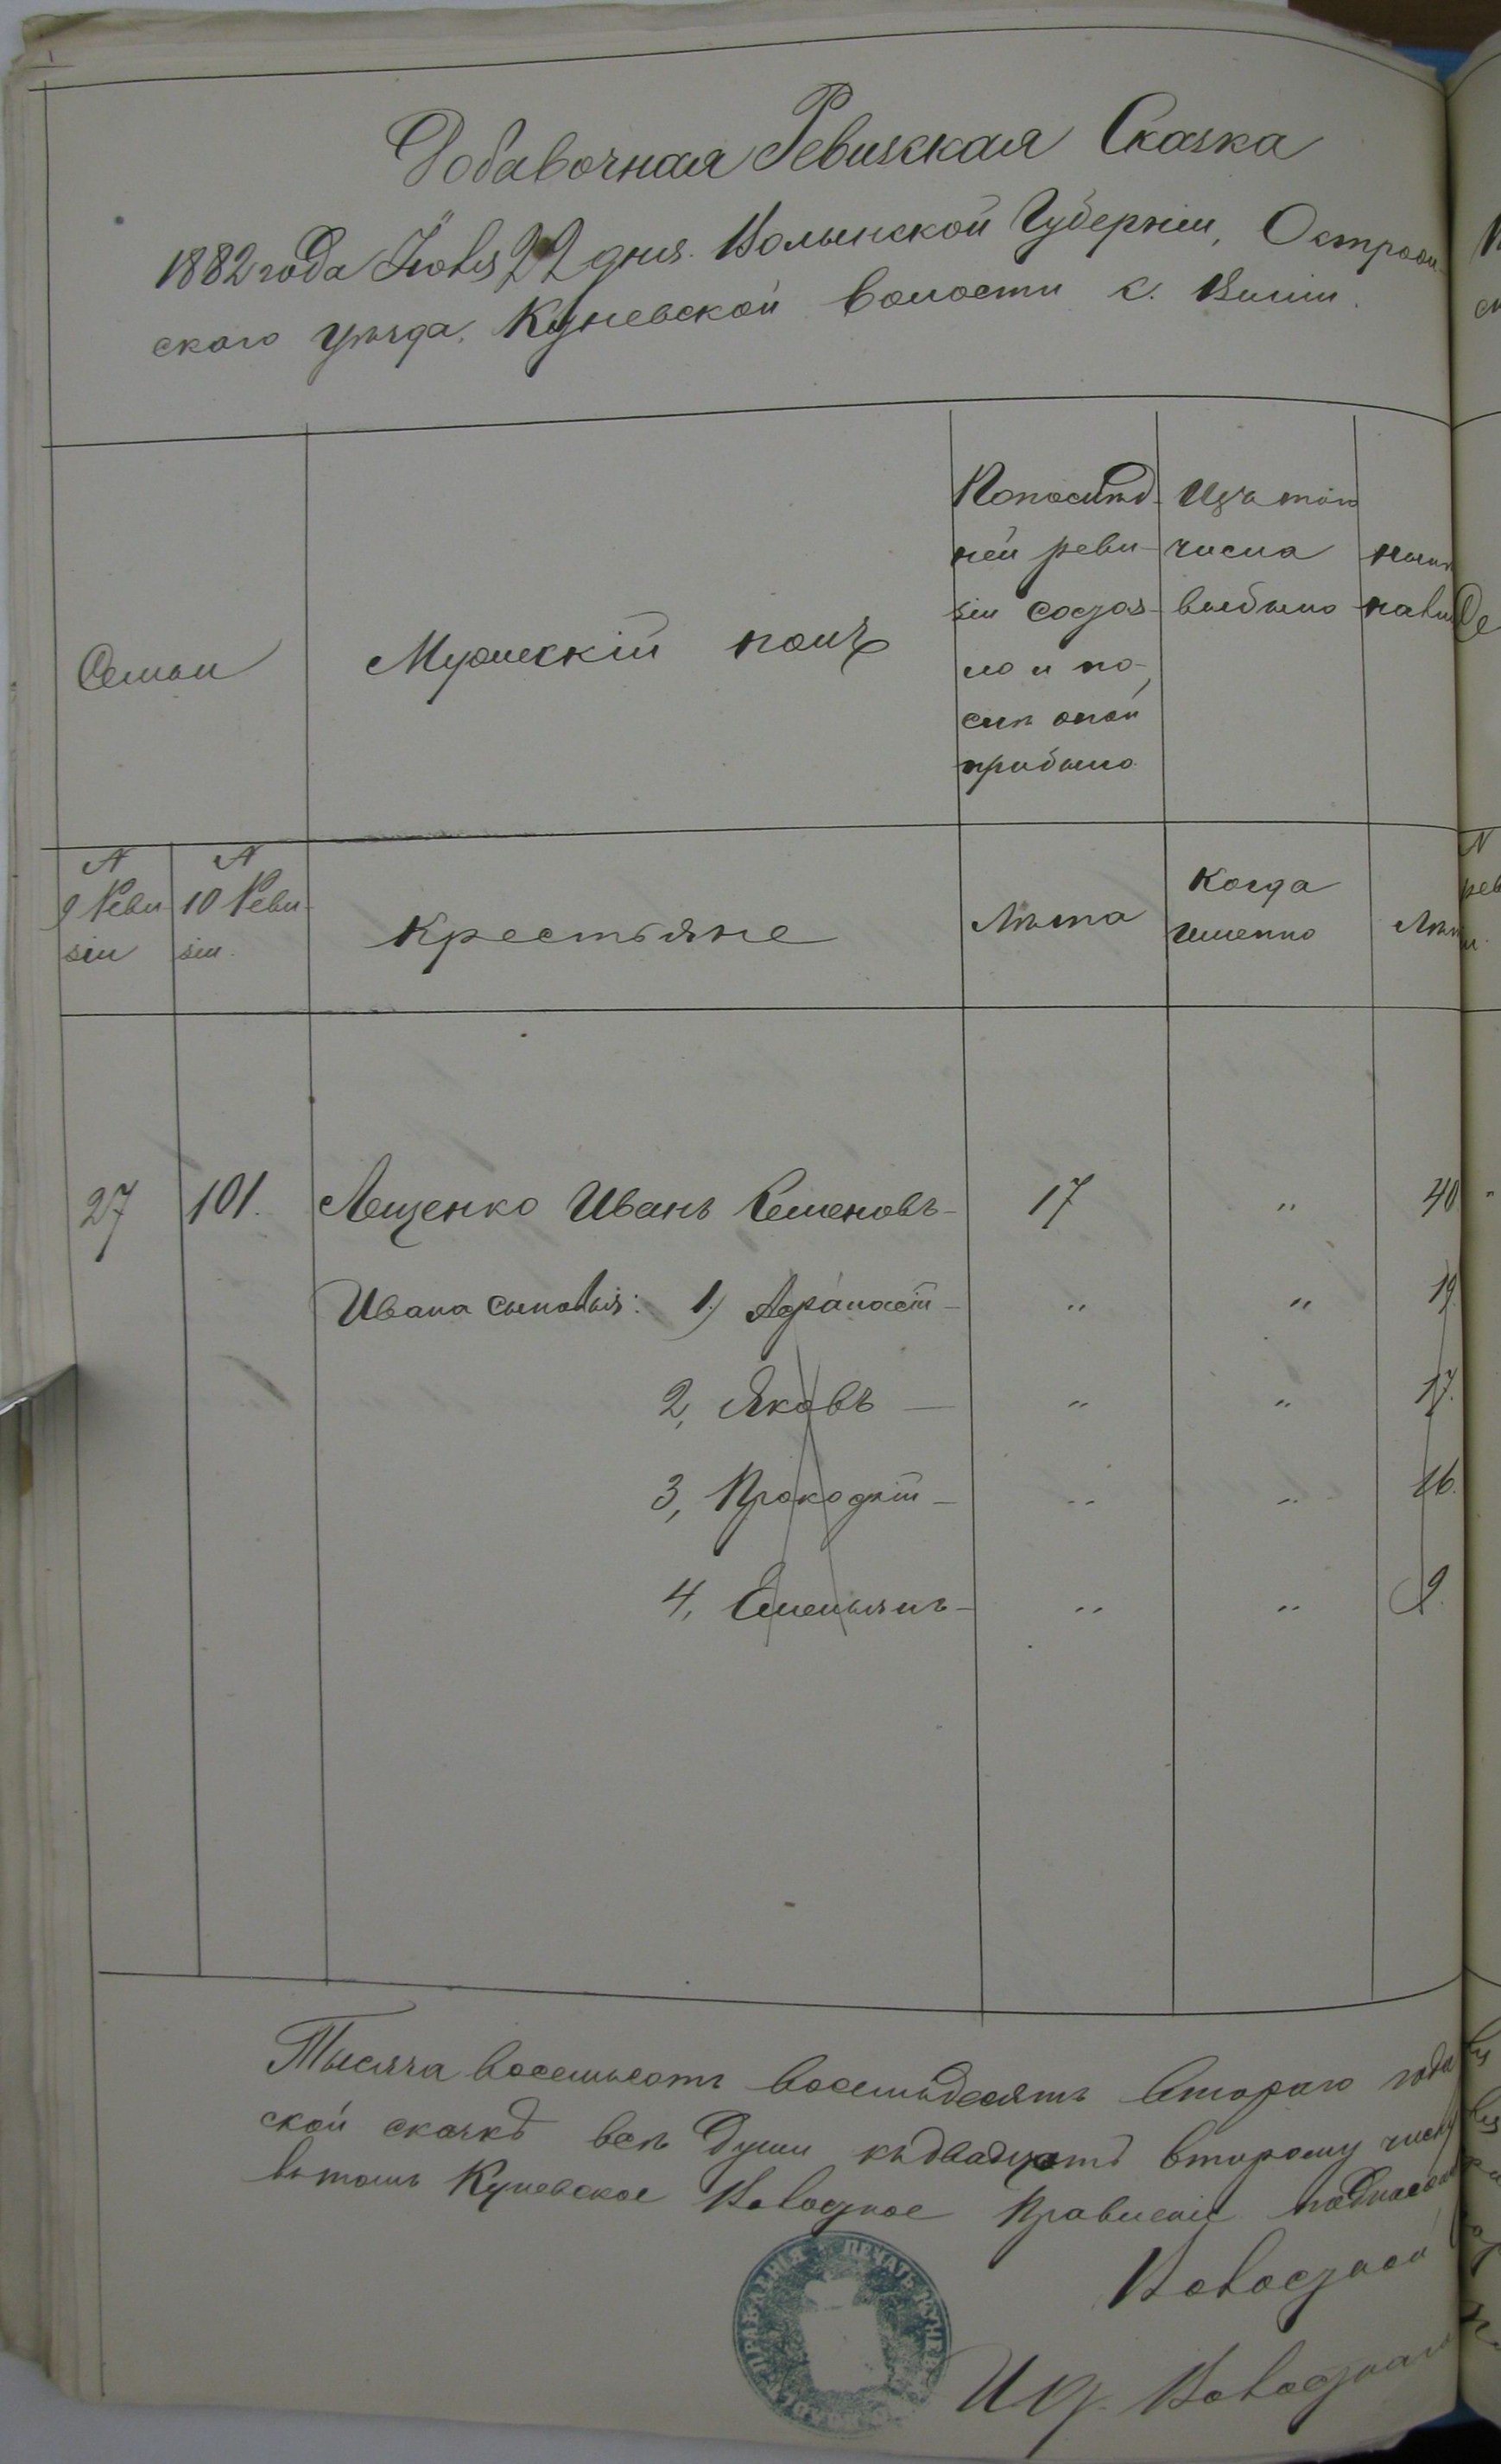 Добавочная Ревизская Сказка
1882 года Іюля 22 дня. Волынской Губерніи, Острож-
ского уѣзда, Куневской волости с. Виліи.
Семьи
Мужескій полъ
Попослѣд-
ней реви-
зіи состоя-
ло и по-
слѣ оной
прибыло
Изъ того
числа
выбыло
нынѣ
налиц
№
9 Реви-
зіи
№
10 Реви-
зіи.
Крестьяне
Лѣта
Когда
именно
Лѣт
27 101. Лещенко Иванъ Семеновъ- 17 " 40
Ивана сыновья: 1.) Афанасій- " " 19.
2, Яковъ — " " 17.
3, Прокофій- " " 16.
4, Емельянъ- " " 9.
Тысяча восемьсотъ восемьдесятъ втораго года
ской сказкѣ всѣ души къ двадцать второму числу
вътомъ Куневское Волостное Правленіе
Волостной
И д. Волостнаго
ПЕЧАТЬ КУНЕВ ПРАВЛЕНІЯ